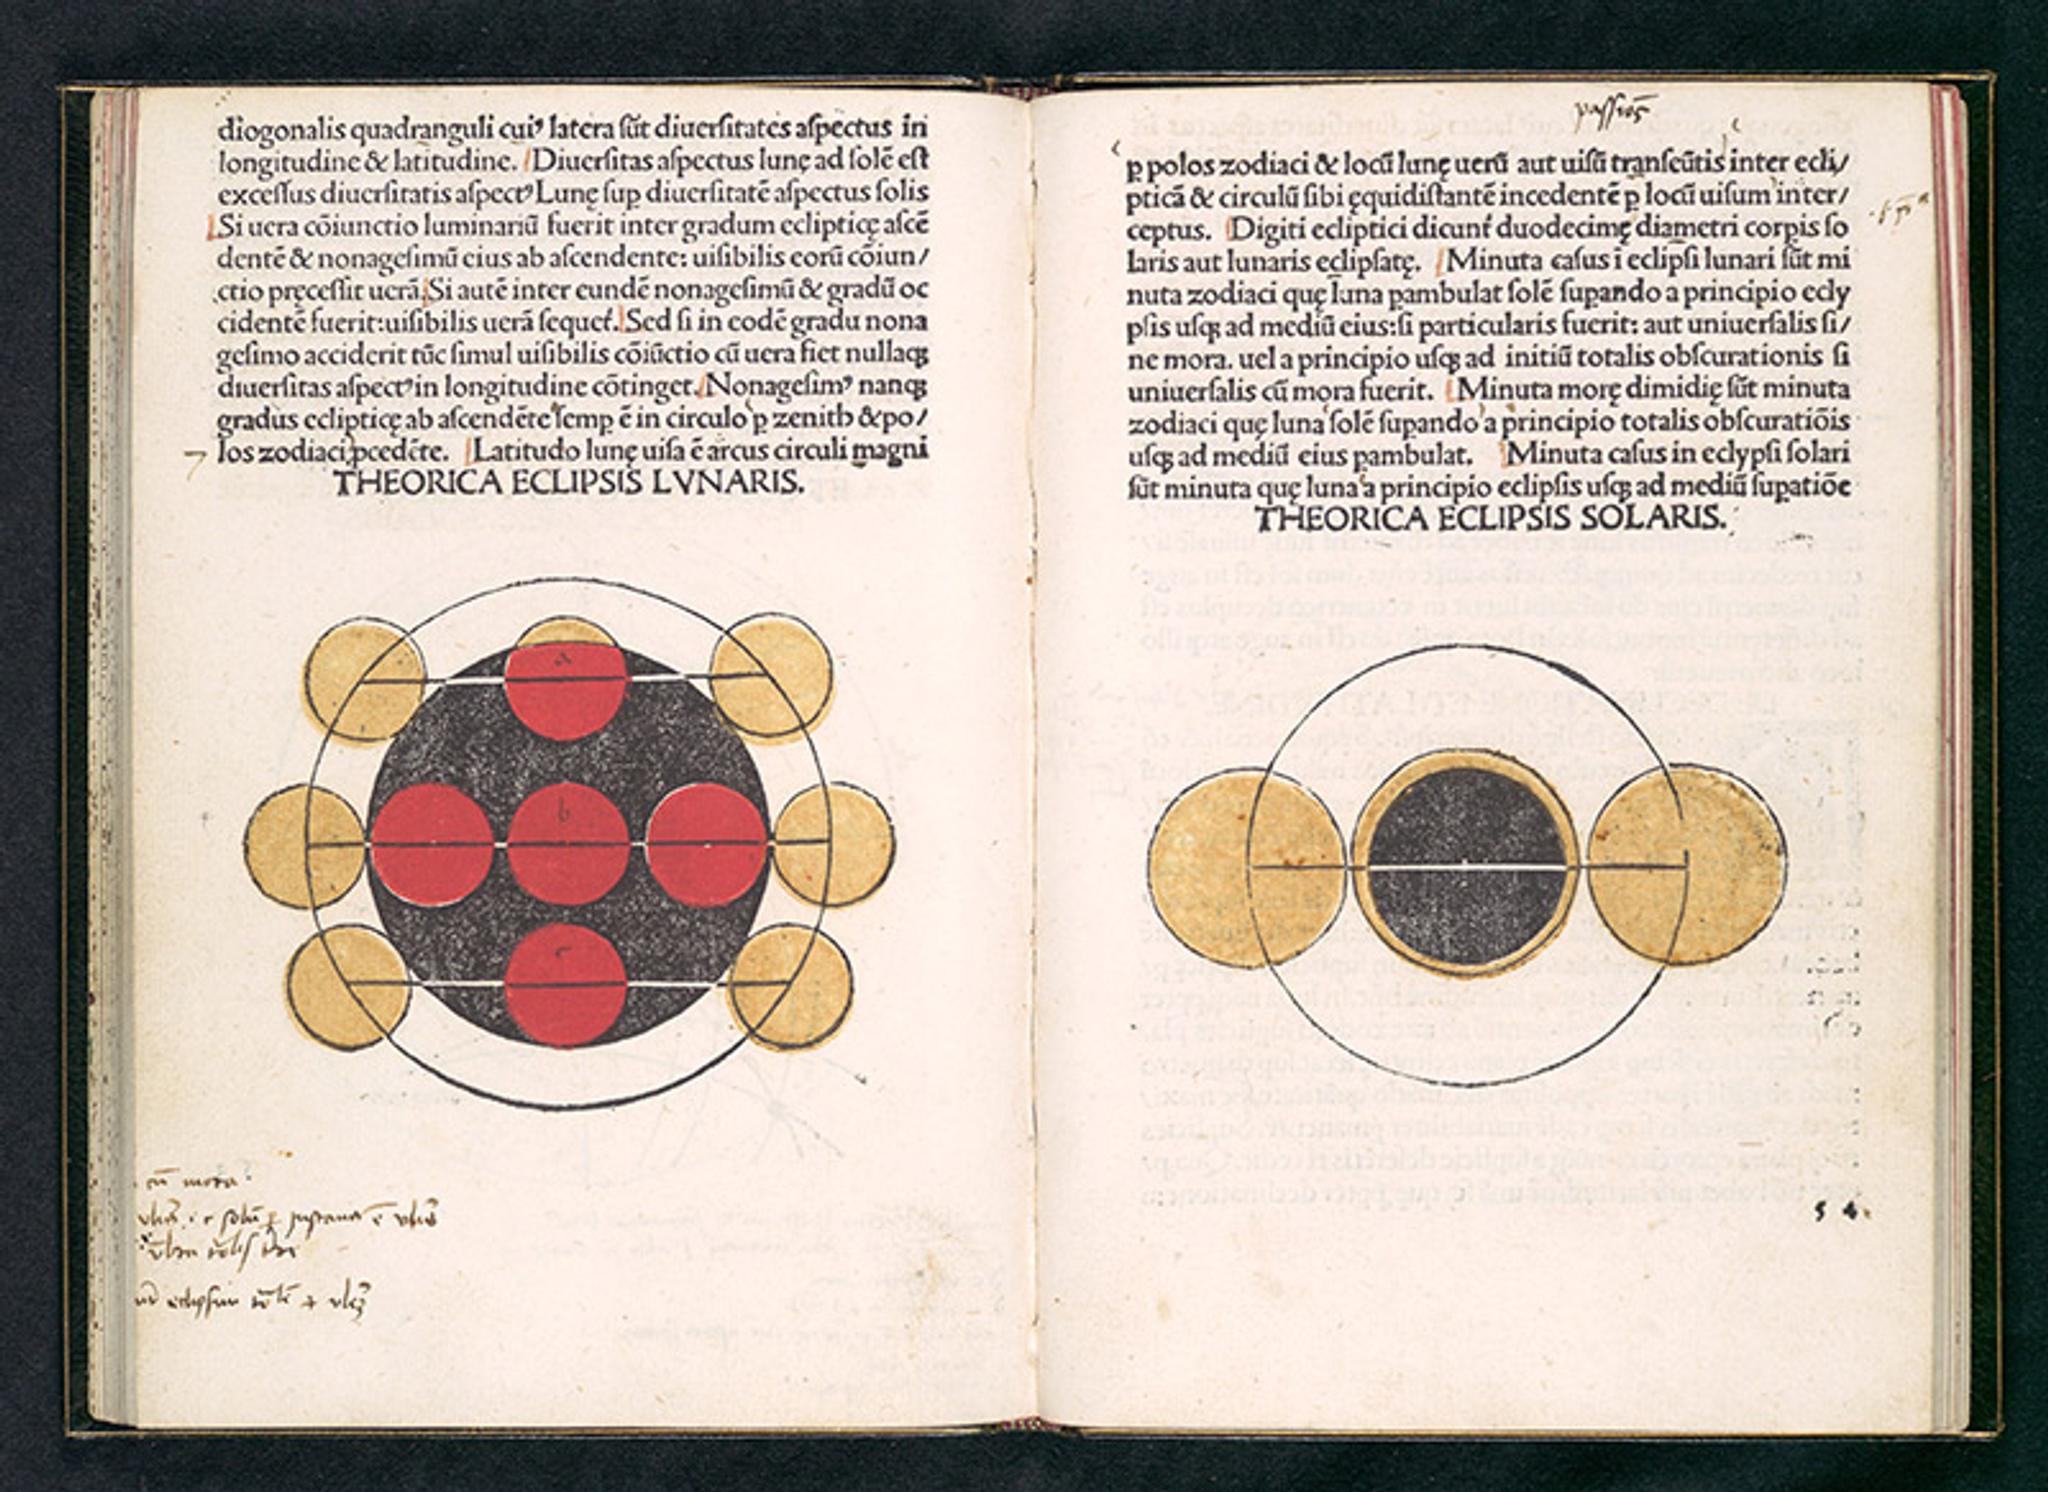 diogonalis quadranguli cuiꝰ latera sũt diuersitates aspectus in
longitudine & latitudine. Diuersitas aspectus lunę ad solẽ est
excessus diuersitatis aspectꝰ Lunę sup diuersitatẽ aspectus solis
Si uera cõiunctio luminariũ fuerit inter gradum eclipticę ascẽ
dentẽ & nonagesimũ eius ab ascendente: uisibilis eorũ cõiun/
ctio pręcessit uerã. Si autẽ inter eundẽ nonagesimũ & gradũ oc
cidentẽ fuerit: uisibilis uerã sequet̃. Sed si in eodẽ gradu nona
gesimo acciderit tũc simul uisibilis cõiũctio cũ uera fiet nullaqꝫ
diuersitas aspectꝰ in longitudine cõtinget. Nonagesimꝰ nanqꝫ
gradus eclipticę ab ascendẽte semp ẽ in circulo ꝑ zenith & po/
los zodiaci ꝓcedẽte. Latitudo lunę uisa ẽ arcus circuli magni
THEORICA ECLIPSIS LVNARIS.
a
b
c
passiõs
ꝑ polos zodiaci & locũ lunę uerũ aut uisũ transeũtis inter ecli/
pticã & circulũ sibi ęquidistantẽ incedentẽ ꝑ locũ uisum inter/
ceptus. Digiti ecliptici dicunt̃ duodecimę diametri corpis so
laris aut lunaris eclipsatę. Minuta casus ĩ eclipsi lunari sũt mi
nuta zodiaci quę luna pambulat solẽ supando a principio ecly
psis usqꝫ ad mediũ eius: si particularis fuerit: aut uniuersalis si/
ne mora. uel a principio usqꝫ ad initiũ totalis obscurationis si
uniuersalis cũ mora fuerit. Minuta morę dimidię sũt minuta
zodiaci quę luna solẽ supando a principio totalis obscuratiõis
usqꝫ ad mediũ eius pambulat. Minuta casus in eclypsi solari
sũt minuta quę luna a principio eclipsis usqꝫ ad mediũ supatiõe
THEORICA ECLIPSIS SOLARIS.